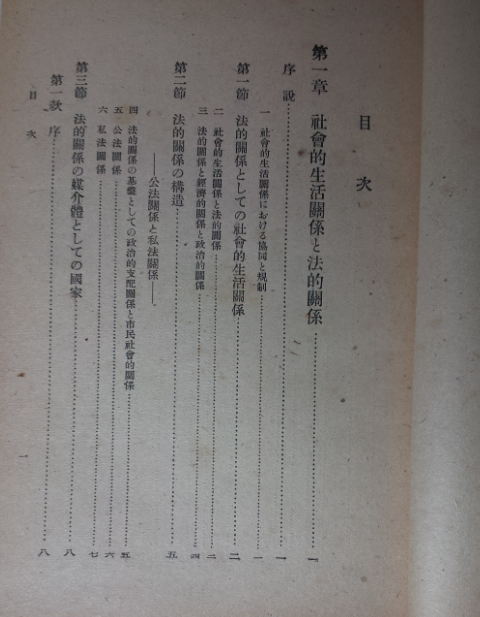 目次
第一章 社會的生活關係と法的關係……一
序說……一
第一節 法的關係としての社會的生活關係……二
一 社會的生活關係における協同と規制……一
二 社會的生活關係と法的關係……二
三 法的關係と經濟的關係と政治的關係……四
第二節 法的關係の構造……五
——公法關係と私法關係——
四 法的關係の基礎としての政治的支配關係と市民社會的關係……五
五 公法關係……六
六 私法關係……七
第三節 法的關係の媒介體としての國家……八
第一款 序……八
目次
一